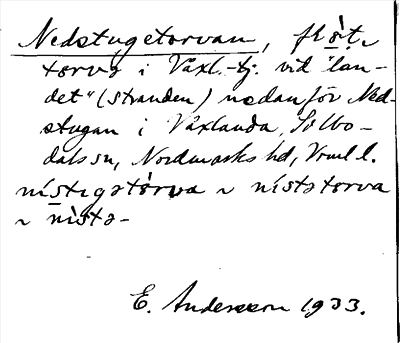 Nedstugetorvan, flöt-
torva i Växl.-tj. vid "lan-
det" (stranden) nedanför Ned-
stugan i Växlanda, Silbo-
dals sn, Nordmarks hd, Vrml l.
nístıgətòrva ~ nístətorva
~ nìstə-
E. Andersson 1933.